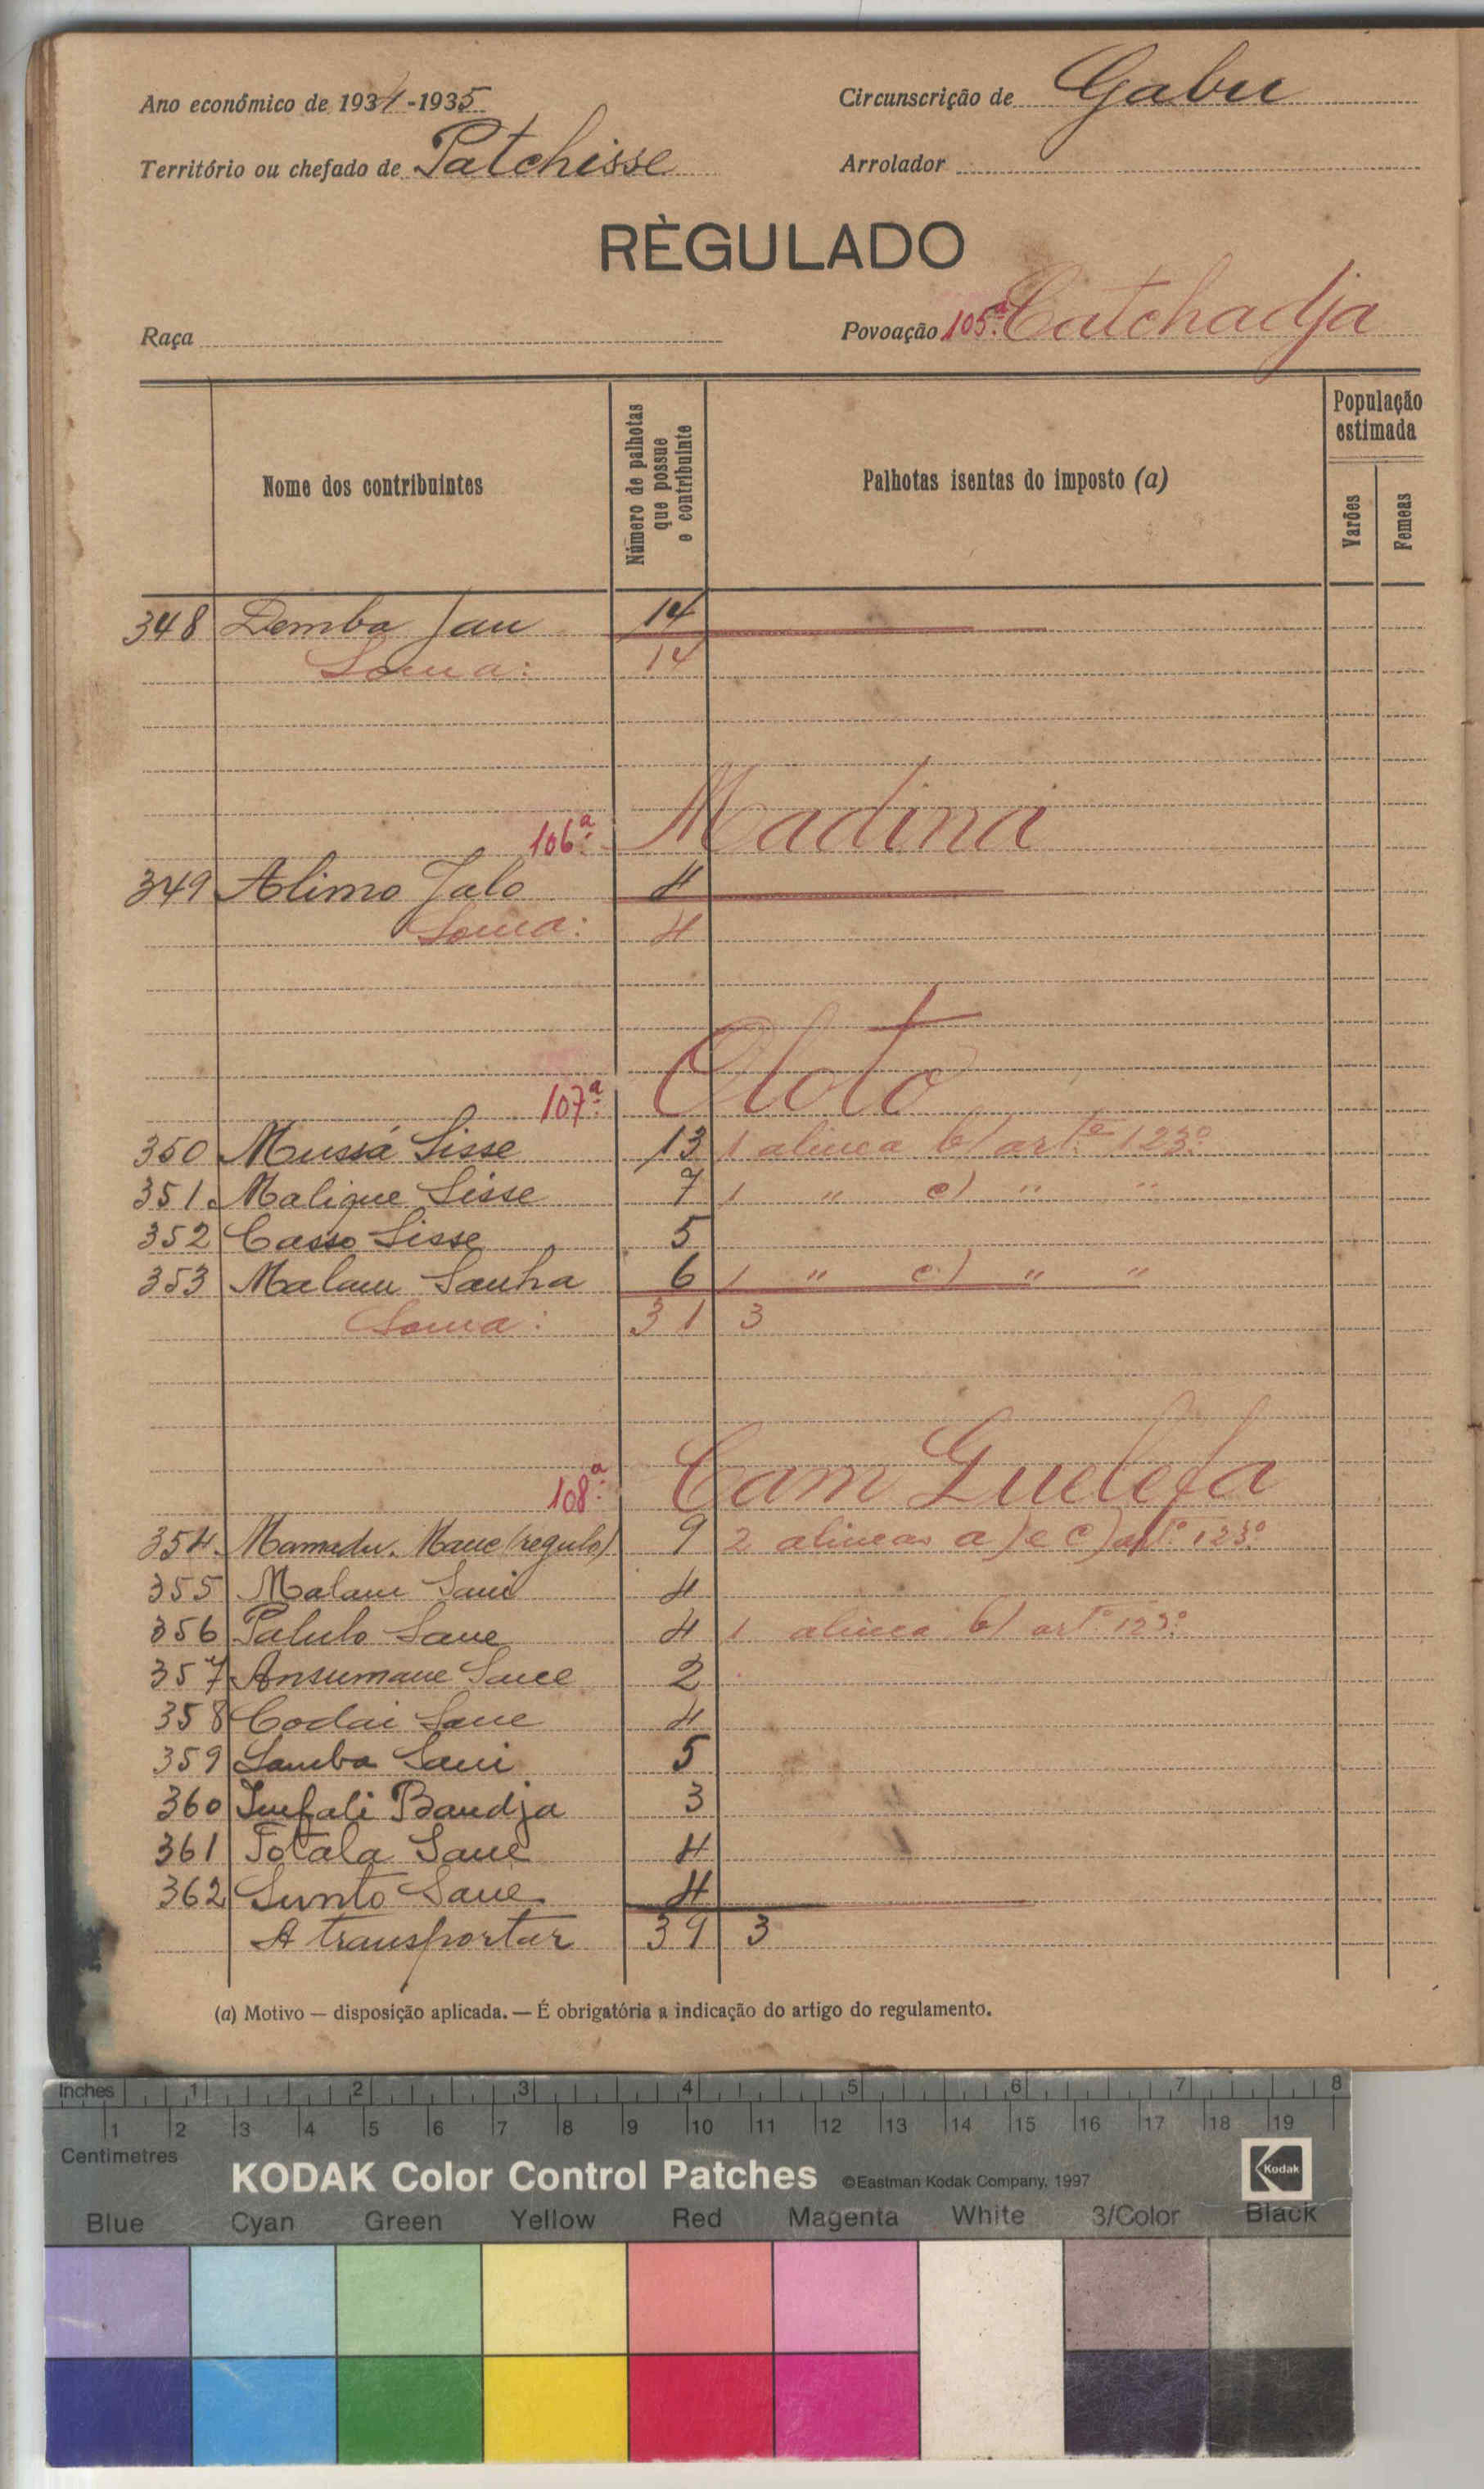 Ano económico de 1934-1935 Circunscrição de Gabu
Território ou chefado de Patchisse Arrolador
RÈGULADO
Raça Povoação 105ª Catchadja
Nome dos contribuintes
Número de palhotas que possue o contribuinte
Palhotas isentas do imposto (a)
População estimada
Varões
Femeas
348 Demba Jau 14
Soma: 14
106ª Madina
349 Alimo Jalo 4
Soma: 4
107ª Oloto
350 Mussá Sisse 13 1 alinea b) artº 123º
351 Malique Sisse 7 1 " c) " "
352 Casso Sisse 5
353 Malam Sanha 6 1 " c) " "
Soma: 31 3
108ª Cam Guelefa
354 Mamadu Mane (regulo) 9 2 alineas a) e c) artº 123º
355 Malam Sani 4
356 Sane 4 1 alinea b) artº 123º
357 Ansumane Sane 2
358 Codai Sane 4
359 Samba Sani 5
360 Infali Bandja 3
361 Fotala Sane 4
362 Sunto Sane 4
A transportar 39 3
(a) Motivo — disposição aplicada. — É obrigatória a indicação do artigo do regulamento.
Inches 1 2 3 4 5 6 7 8
1 2 3 4 5 6 7 8 9 10 11 12 13 14 15 16 17 18 19
Centimetres
KODAK Color Control Patches ©Eastman Kodak Company, 1997 Kodak
Blue Cyan Green Yellow Red Magenta White 3/Color Black